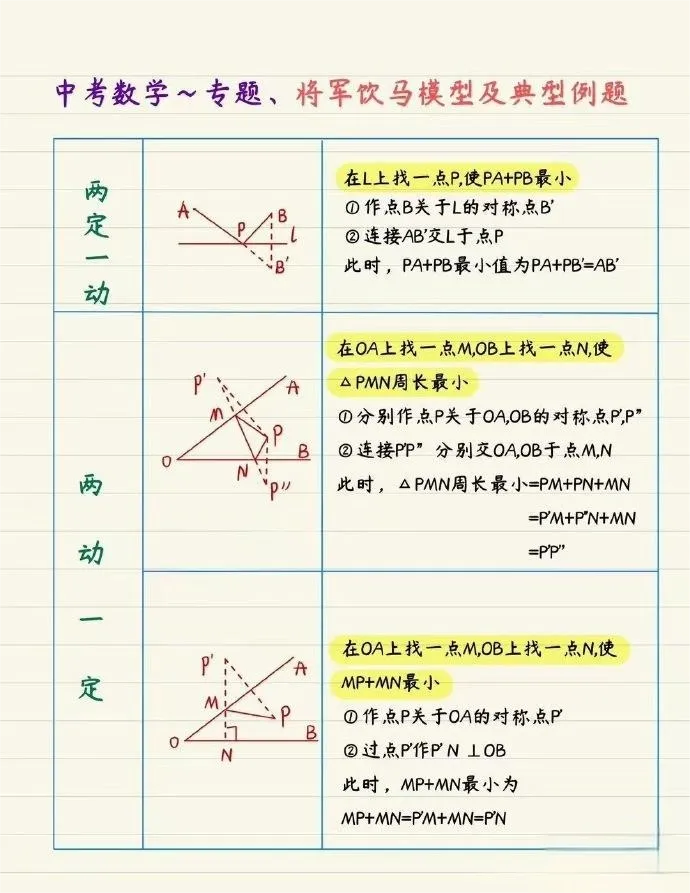 中考数学～专题、将军饮马模型及典型例题
两定一动
A
B
P
L
B'
在L上找一点P,使PA+PB最小
①作点B关于L的对称点B'
②连接AB'交L于点P
此时，PA+PB最小值为PA+PB'=AB'
两动一定
P'
A
M
P
O
N
B
P''
在OA上找一点M,OB上找一点N,使
△PMN周长最小
①分别作点P关于OA,OB的对称点P',P''
②连接P'P'' 分别交OA,OB于点M,N
此时，△PMN周长最小=PM+PN+MN
=P'M+P''N+MN
=P'P''
P'
A
M
P
O
N
B
在OA上找一点M,OB上找一点N,使
MP+MN最小
①作点P关于OA的对称点P'
②过点P'作P'N⊥OB
此时，MP+MN最小为
MP+MN=P'M+MN=P'N